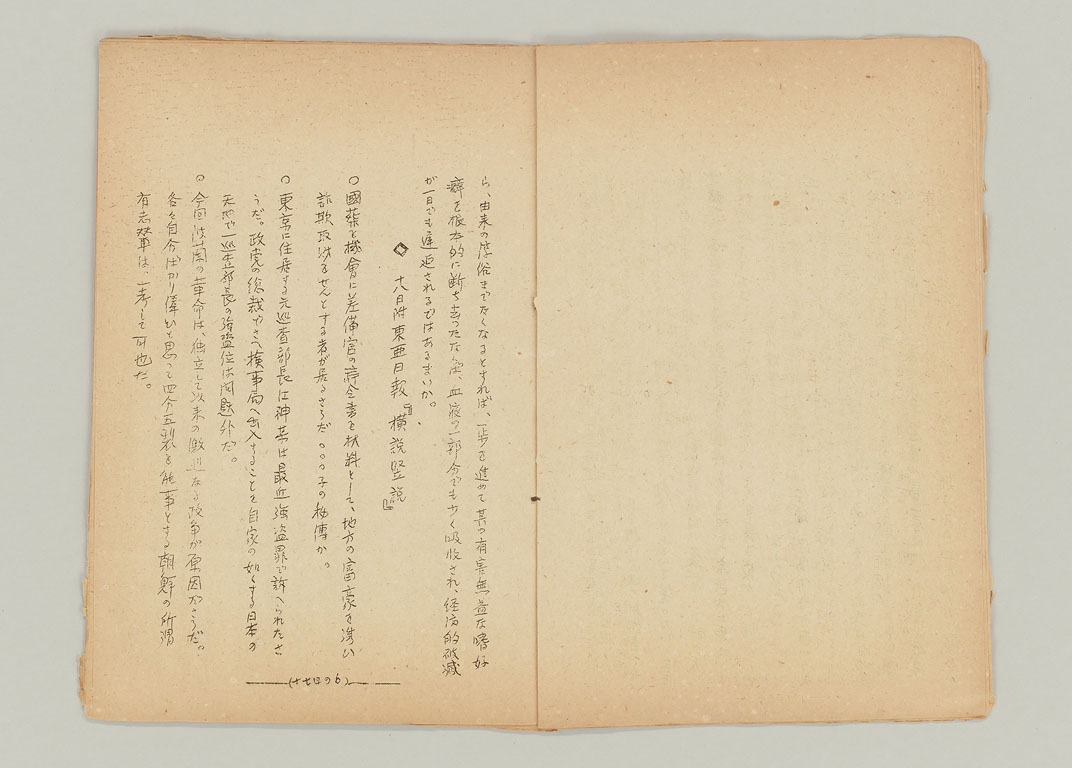 ら、由来の俗までなくなるとすれば、一歩を進めて其の有害無益な嗜好
癖を根本的に断ち去つたなら、血液の一部分でも少く吸收され、経済的破滅
が一日でも遅延されるではあるまいか。
◇ 十八日附東亜日報『横説竪説』
○國葬を機會に差備官の辞令書を材料として、地方の富豪を
詐欺取せんとする者が居るさうだ。○○○子の秘傳か。
○東京に住居する元巡査部長は最近強盗罪で訴へられたさ
うだ。政党の総裁がさへ検事局へ出入することを自家の如くする日本の
天地で一巡査部長の強盗位は問題外だ。
○今回波蘭の革命は、独立して以来の激なる政争が原因ださうだ。
各々自分ばかり偉いと思つて四分五裂を能事とする朝鮮の所謂
有志輩は、一考して可也だ。
(十七日の6)